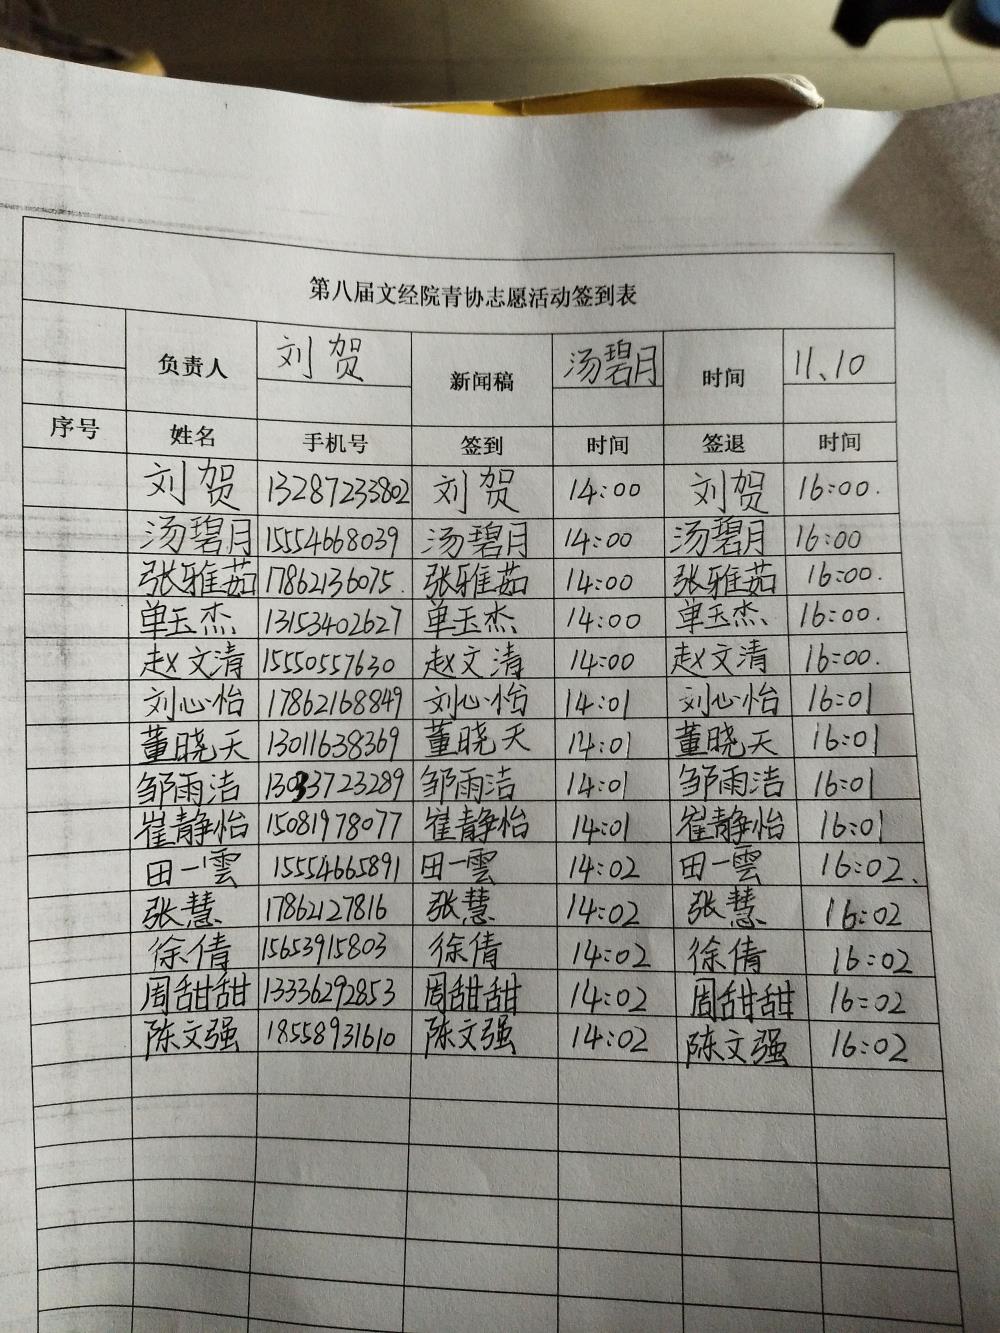 第八届文经院青协志愿活动签到表
负责人 刘贺 新闻稿 汤碧月 时间 11、10
序号 姓名 手机号 签到 时间 签退 时间
刘贺 13287233802 刘贺 14:00 刘贺 16:00.
汤碧月 15554668039 汤碧月 14:00 汤碧月 16:00
张雅茹 17862136075. 张雅茹 14:00 张雅茹 16:00.
单玉杰 13153402627 单玉杰 14:00 单玉杰 16:00.
赵文清 15550557630 赵文清 14:00 赵文清 16:00.
刘心怡 17862168849 刘心怡 14:01 刘心怡 16:01
董晓天 13011638369 董晓天 14:01 董晓天 16:01
邹雨洁 13033723289 邹雨洁 14:01 邹雨洁 16:01
崔静怡 15081978077 崔静怡 14:01 崔静怡 16:01
田一雲 15554665891 田一雲 14:02 田一雲 16:02、
张慧 17862127816 张慧 14:02 张慧 16:02
徐倩 15653915803 徐倩 14:02 徐倩 16:02
周甜甜 13336292853 周甜甜 14:02 周甜甜 16:02
陈文强 18558931610 陈文强 14:02 陈文强 16:02